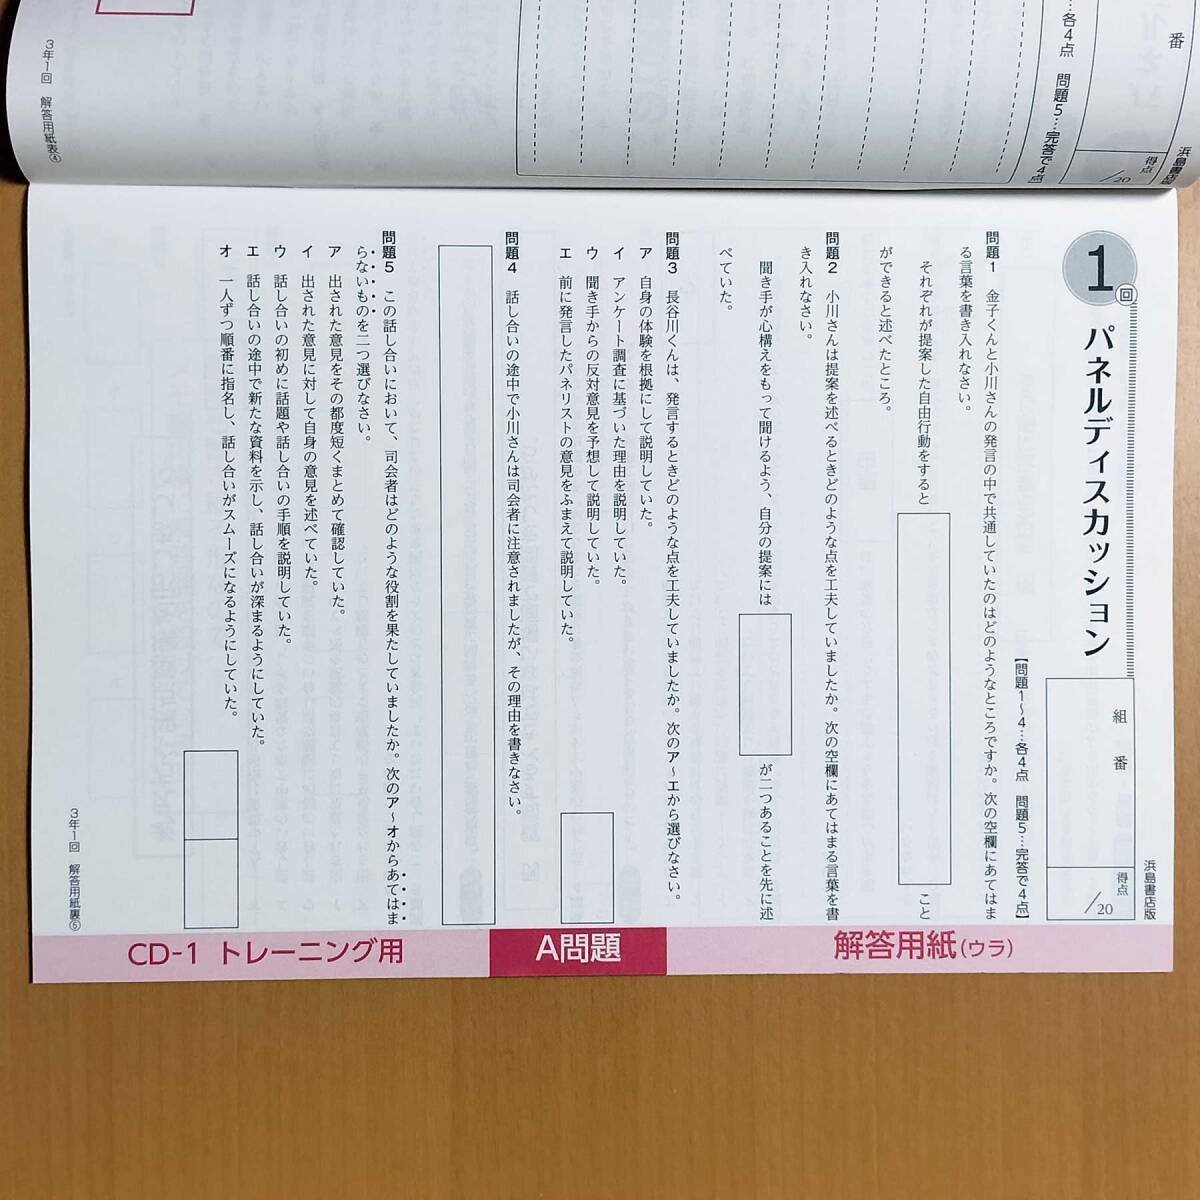 番
得点
/20
浜島書店版
…各4点　問題5…完答で4点】
3年1回　解答用紙表④
1回　パネルディスカッション
組　番
得点
/20
浜島書店版
【問題1～4…各4点　問題5…完答で4点】
問題1　金子くんと小川さんの発言の中で共通していたのはどのようなところですか。次の空欄にあてはま
る言葉を書き入れなさい。
それぞれが提案した自由行動をすると　こと
ができると述べたところ。
問題2　小川さんは提案を述べるときどのような点を工夫していましたか。次の空欄にあてはまる言葉を書
き入れなさい。
聞き手が心構えをもって聞けるよう、自分の提案には　が二つあることを先に述
べていた。
問題3　長谷川くんは、発言するときどのような点を工夫していましたか。次のア～エから選びなさい。
ア　自身の体験を根拠にして説明していた。
イ　アンケート調査に基づいた理由を説明していた。
ウ　聞き手からの反対意見を予想して説明していた。
エ　前に発言したパネリストの意見をふまえて説明していた。
問題4　話し合いの途中で小川さんは司会者に注意されましたが、その理由を書きなさい。
問題5　この話し合いにおいて、司会者はどのような役割を果たしていましたか。次のア～オからあてはま
らないものを二つ選びなさい。
ア　出された意見をその都度短くまとめて確認していた。
イ　出された意見に対して自身の意見を述べていた。
ウ　話し合いの初めに話題や話し合いの手順を説明していた。
エ　話し合いの途中で新たな資料を示し、話し合いが深まるようにしていた。
オ　一人ずつ順番に指名し、話し合いがスムーズになるようにしていた。
3年1回　解答用紙裏⑤
CD-1　トレーニング用
A問題
解答用紙（ウラ）